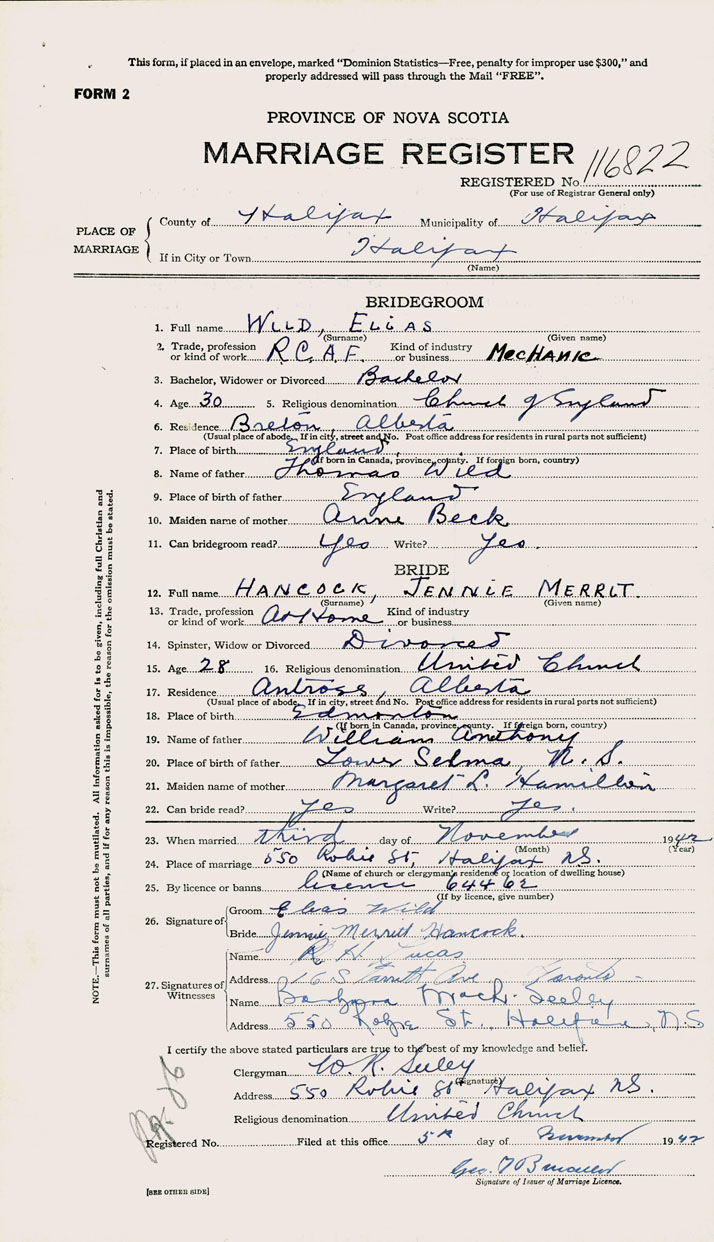 This form, if placed in an envelope, marked "Dominion Statistics—Free, penalty for improper use $300," and
properly addressed will pass through the Mail "FREE".
FORM 2
PROVINCE OF NOVA SCOTIA
MARRIAGE REGISTER
REGISTERED No. 116822
(For use of Registrar General only)
PLACE OF MARRIAGE
County of Halifax Municipality of Halifax
If in City or Town Halifax
(Name)
BRIDEGROOM
1. Full name WILD, ELIAS
(Surname) (Given name)
2. Trade, profession or kind of work R.C.A.F. Kind of industry or business MECHANIC
3. Bachelor, Widower or Divorced Bachelor
4. Age 30 5. Religious denomination Church of England
6. Residence Breton, Alberta
(Usual place of abode. If in city, street and No. Post office address for residents in rural parts not sufficient)
7. Place of birth England
(If born in Canada, province, county. If foreign born, country)
8. Name of father Thomas Wild
9. Place of birth of father England
10. Maiden name of mother Anne Beck
11. Can bridegroom read? Yes Write? Yes.
BRIDE
12. Full name HANCOCK, JENNIE MERRIT.
(Surname) (Given name)
13. Trade, profession or kind of work At Home Kind of industry or business
14. Spinster, Widow or Divorced Divorced
15. Age 28 16. Religious denomination United Church
17. Residence Antross, Alberta
(Usual place of abode. If in city, street and No. Post office address for residents in rural parts not sufficient)
18. Place of birth Edmonton
(If born in Canada, province, county. If foreign born, country)
19. Name of father William Anthony
20. Place of birth of father Lower Selma, N.S.
21. Maiden name of mother Margaret L. Hamilton
22. Can bride read? Yes Write? Yes.
23. When married third day of November 1942
(Month) (Year)
24. Place of marriage 550 Robie St, Halifax NS.
(Name of church or clergyman's residence or location of dwelling house)
25. By licence or banns licence 64462
(If by licence, give number)
26. Signature of
Groom Elias Wild
Bride Jennie Merritt Hancock.
27. Signatures of Witnesses
Name R H Lucas
Address Ave Toronto
Name Barbara Seeley
Address 550 Robie St., Halifax, N.S
I certify the above stated particulars are true to the best of my knowledge and belief.
Clergyman W. R. Seeley
(Signature)
Address 550 Robie St Halifax NS.
Religious denomination United Church
Registered No. Filed at this office 5th day of November 1942
Geo.
Signature of Issuer of Marriage Licence.
[SEE OTHER SIDE]
NOTE.—This form must not be mutilated. All information asked for is to be given, including full Christian and
surnames of all parties, and if for any reason this is impossible, the reason for the omission must be stated.